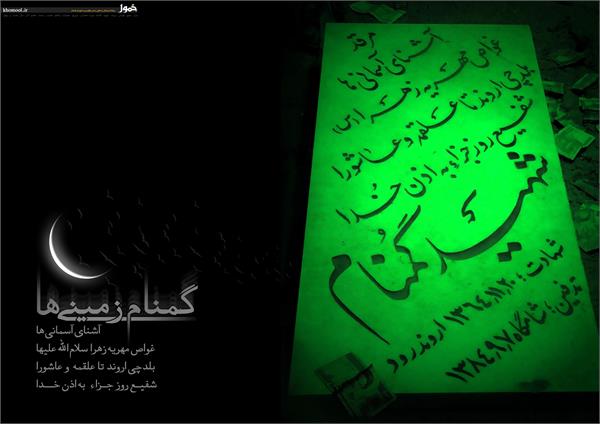 خمول
khomool.ir
مرقد
آشنای آسمانی ها
غواص مهریه زهرا (س)
بلدچی اروند تا علقمه و عاشورا
شفیع روز جزاء به اذن خدا
شهید گمنام
شهادت : ۱۳۶۴،۱۱،۲۰ اروندرود
تدفین : شامگاه ۱۳۸۴،۹،۷
گمنام زمینی‌ها
آشنای آسمانی‌ها
غواص مهریه زهرا سلام الله علیها
بلدچی اروند تا علقمه و عاشورا
شفیع روز جزاء به اذن خدا